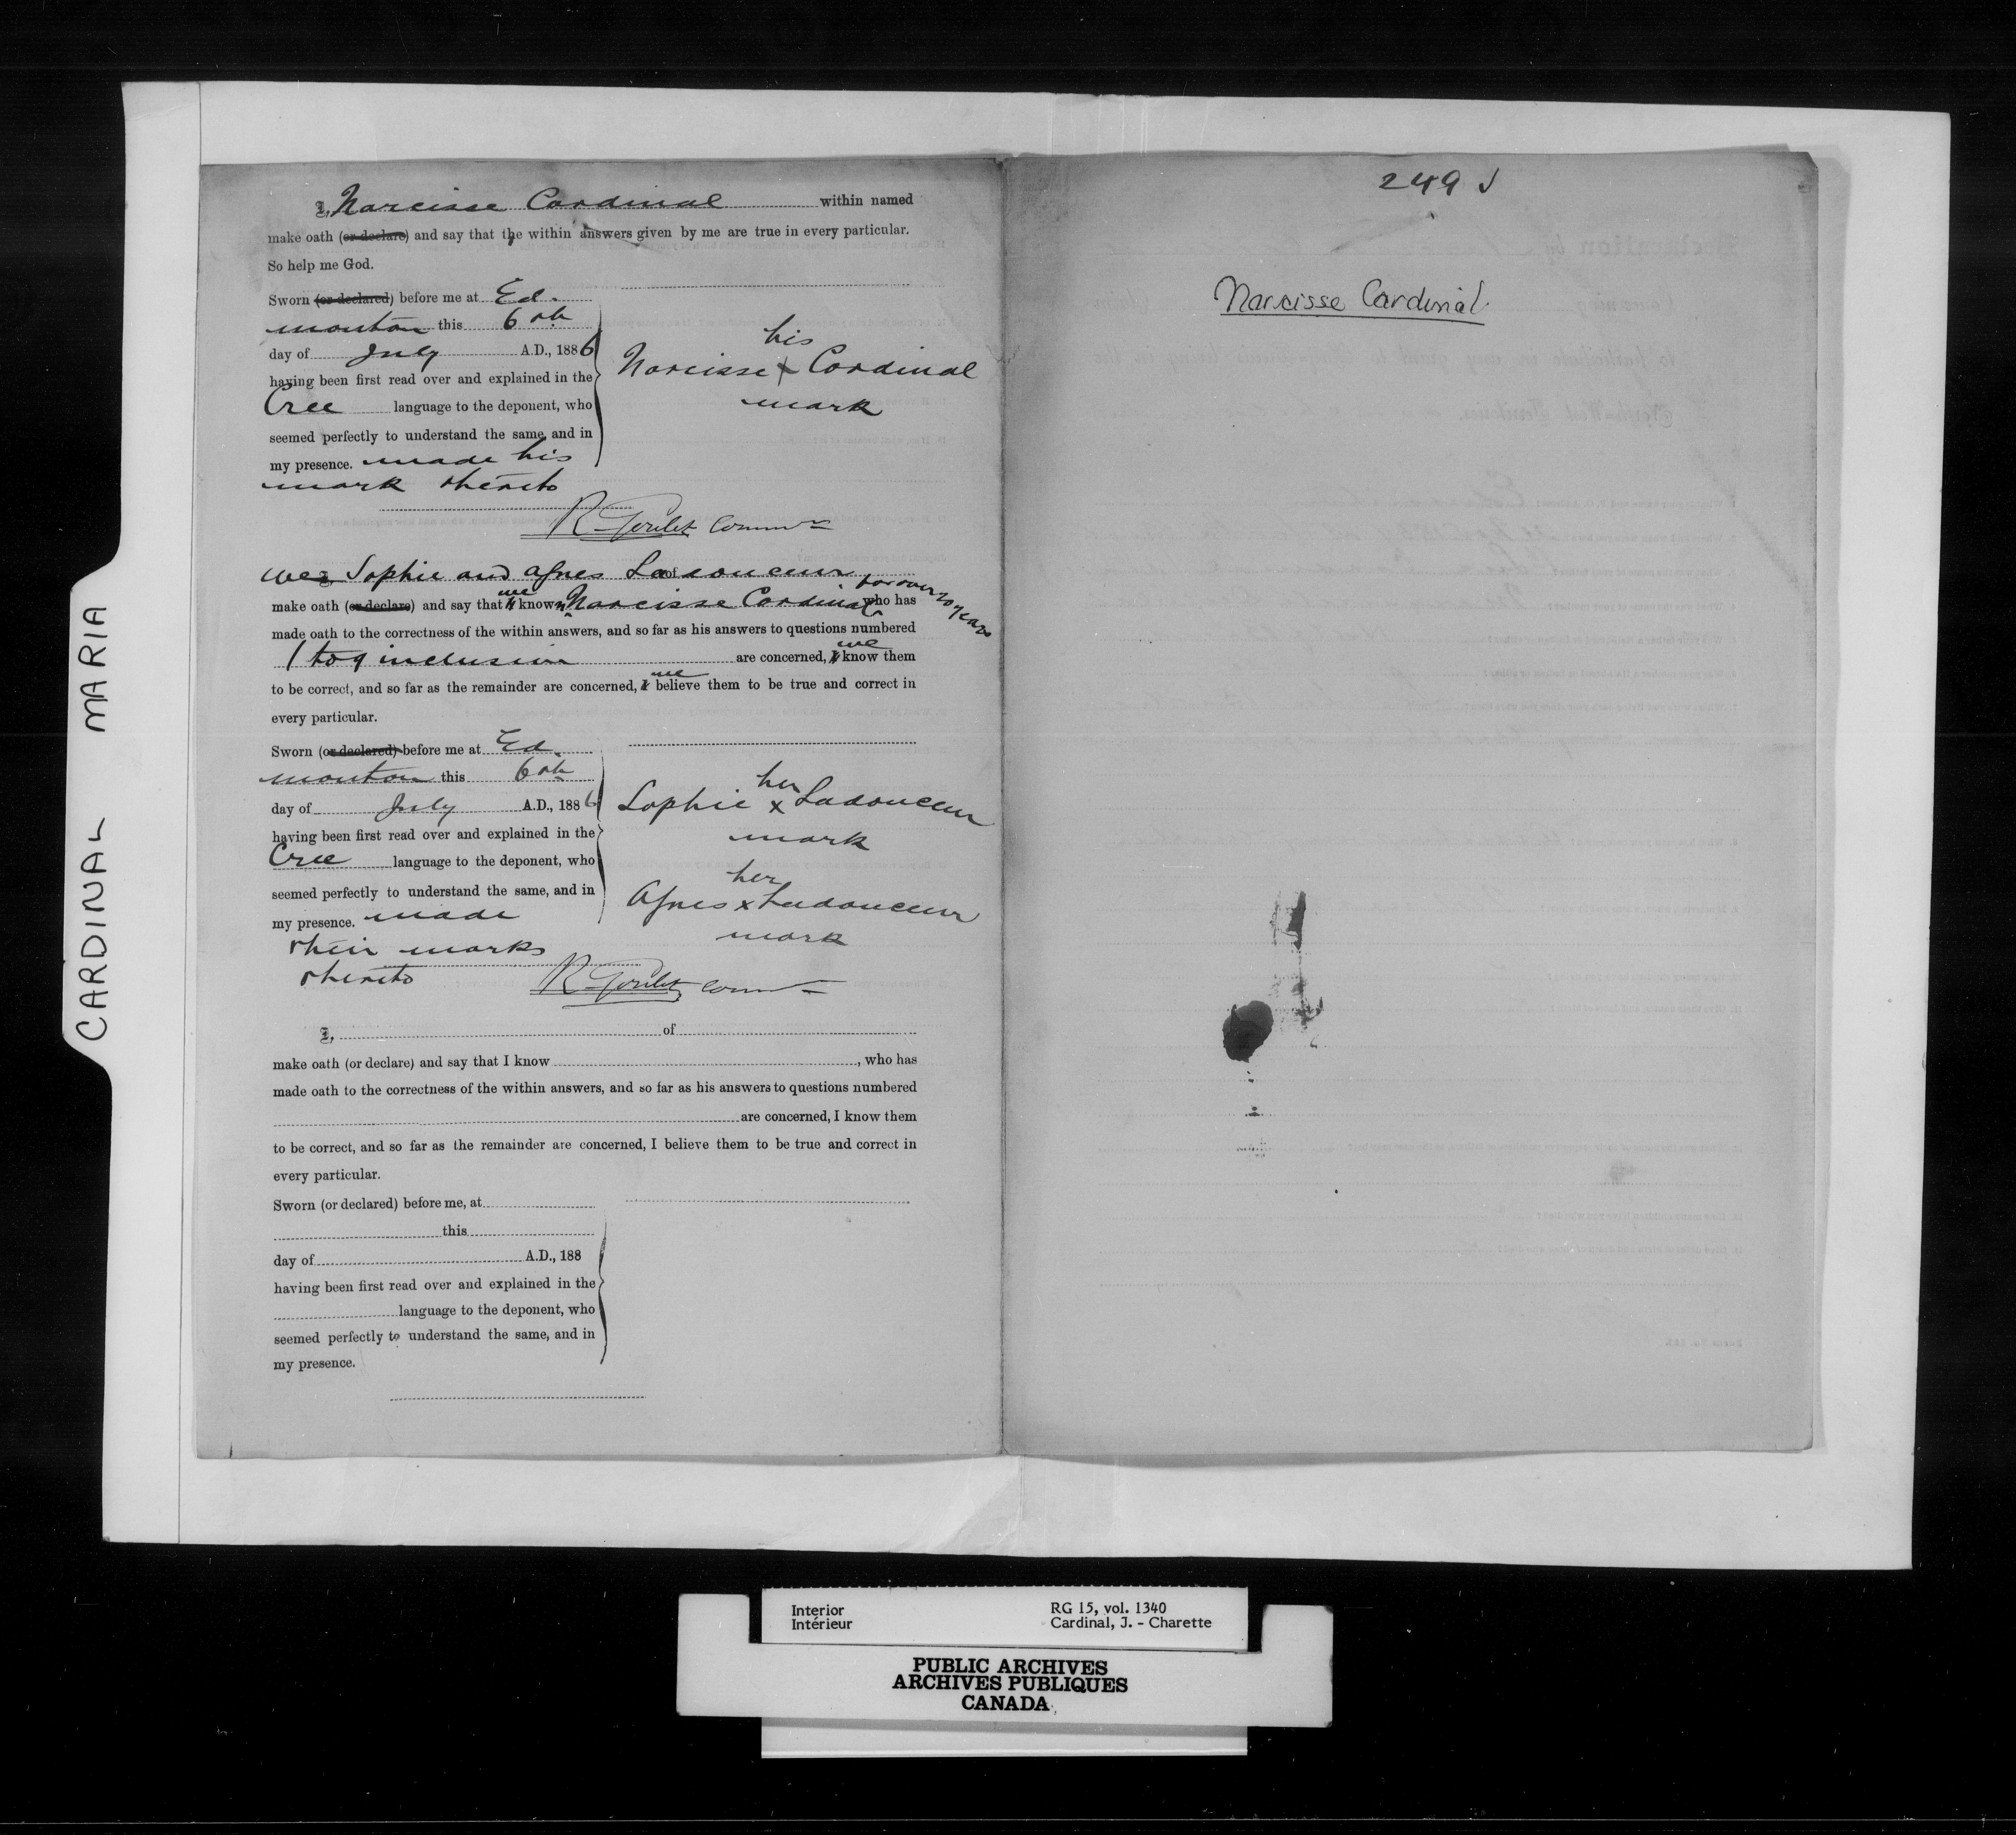 CARDINAL MARIA
I, Narcisse Cardinal within named
make oath (or declare) and say that the within answers given by me are true in every particular.
So help me God.
Sworn (or declared) before me at Ed.
monton this 6th
day of July A.D., 1886
having been first read over and explained in the
Cree language to the deponent, who
seemed perfectly to understand the same, and in
my presence. made his
mark thereto
his
Narcisse x Cardinal
mark
R Goulet Commr
We, Sophie and Agnes Ladouceur of
make oath (or declare) and say that I we know Narcisse Cardinal for over 20 years who has
made oath to the correctness of the within answers, and so far as his answers to questions numbered
1 to 9 inclusive are concerned, I we know them
to be correct, and so far as the remainder are concerned, I we believe them to be true and correct in
every particular.
Sworn (or declared) before me at Ed.
monton this 6th
day of July A.D., 1886
having been first read over and explained in the
Cree language to the deponent, who
seemed perfectly to understand the same, and in
my presence. made
their marks
thereto
her
Sophie x Ladouceur
mark
her
Agnes x Ladouceur
mark
R Goulet Commr
I, of
make oath (or declare) and say that I know , who has
made oath to the correctness of the within answers, and so far as his answers to questions numbered
are concerned, I know them
to be correct, and so far as the remainder are concerned, I believe them to be true and correct in
every particular.
Sworn (or declared) before me, at
this
day of A.D., 188
having been first read over and explained in the
language to the deponent, who
seemed perfectly to understand the same, and in
my presence.
249 J
Narcisse Cardinal
Interior
Intérieur
RG 15, vol. 1340
Cardinal, J. - Charette
PUBLIC ARCHIVES
ARCHIVES PUBLIQUES
CANADA